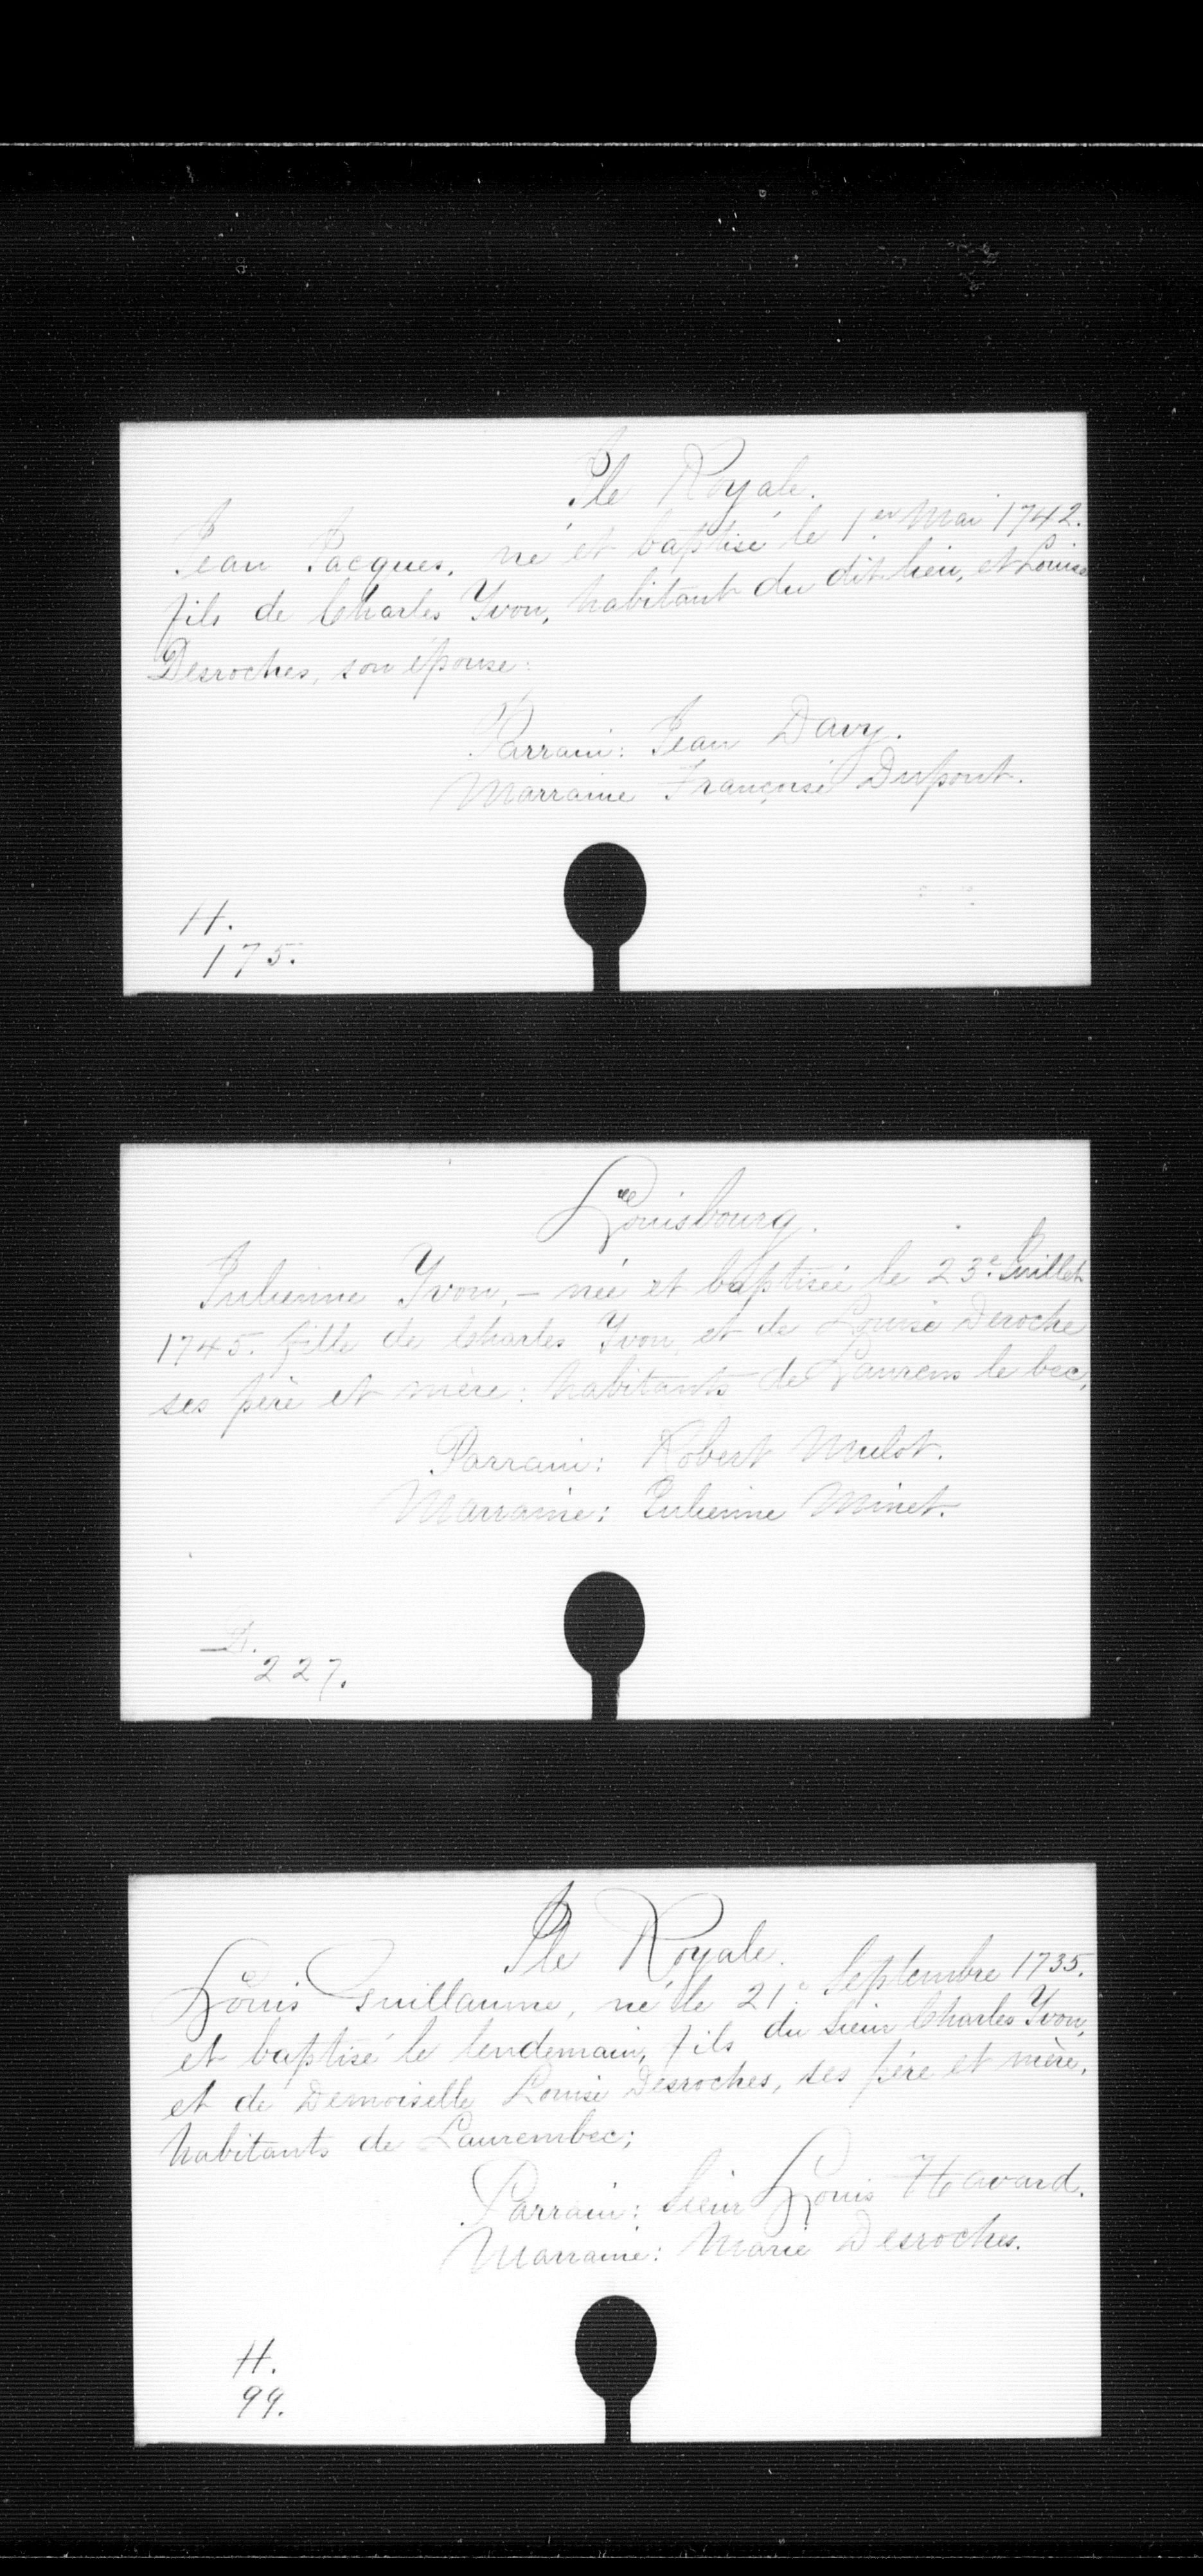 Ile Royale.
Jean Jacques, né et baptisé le 1er Mai 1742.
fils de Charles Yvon, habitant du dit lieu, et Louise
Desroches, son épouse:
Parrain: Jean Davy.
Marraine Françoise Dupont.
H.
175.
Louisbourg.
Julienne Yvon, - née et baptisée le 23e Juillet
1745. fille de Charles Yvon, et de Louise Deroche
ses père et mère: habitants de Laurens le bec,
Parrain: Robert Mulot.
Marraine: Julienne Minet.
D.
227.
Ile Royale.
Louis Guillaume, né le 21e Septembre 1735.
et baptisé le lendemain, fils du Sieur Charles Yvon,
et de Demoiselle Louise Desroches, ses père et mère,
habitants de Laurembec;
Parrain: Sieur Louis Havard.
Marraine: Marie Desroches.
H.
99.